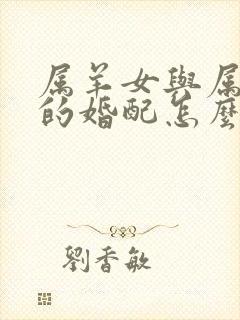 属羊女與属
的婚配怎麼
劉香敏